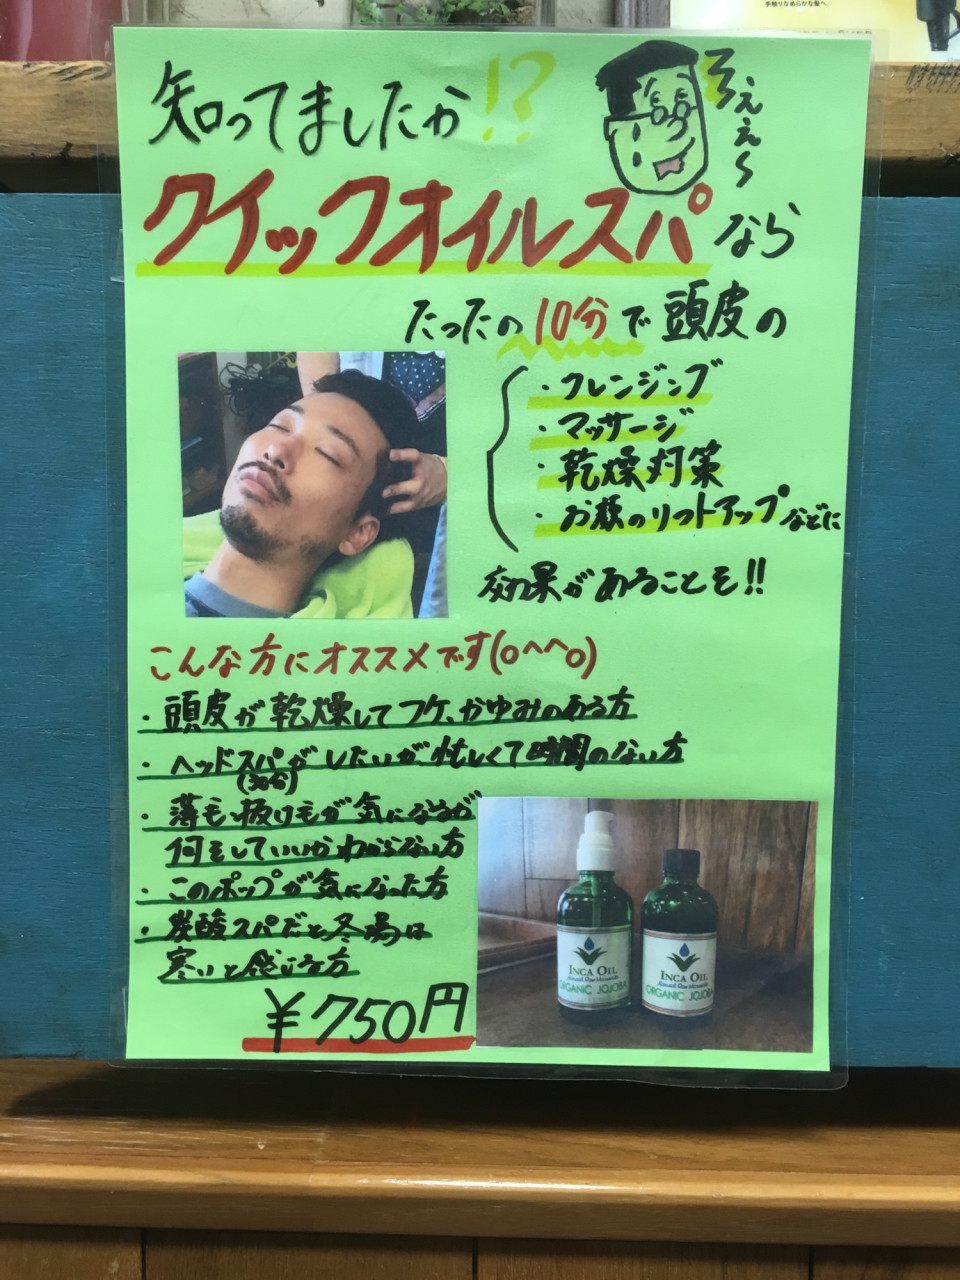 手触りなめらかな髪へ。
知ってましたか!?
えぇぇ～
クイックオイルスパなら
たったの10分で頭皮の
・クレンジング
・マッサージ
・乾燥対策
・お顔のリフトアップなどに
効果があることも!!
こんな方にオススメです(o^^o)
・頭皮が乾燥してフケ、かゆみのある方
・ヘッドスパがしたいが、忙しくて時間のない方
(30分)
・薄毛・抜け毛が気になるが
何をしていいかわからない方
・このポップが気になった方
・炭酸スパだと冬場は
寒いと感じる方
¥750円
INCA OIL
ORGANIC JOJOBA
INCA OIL
ORGANIC JOJOBA